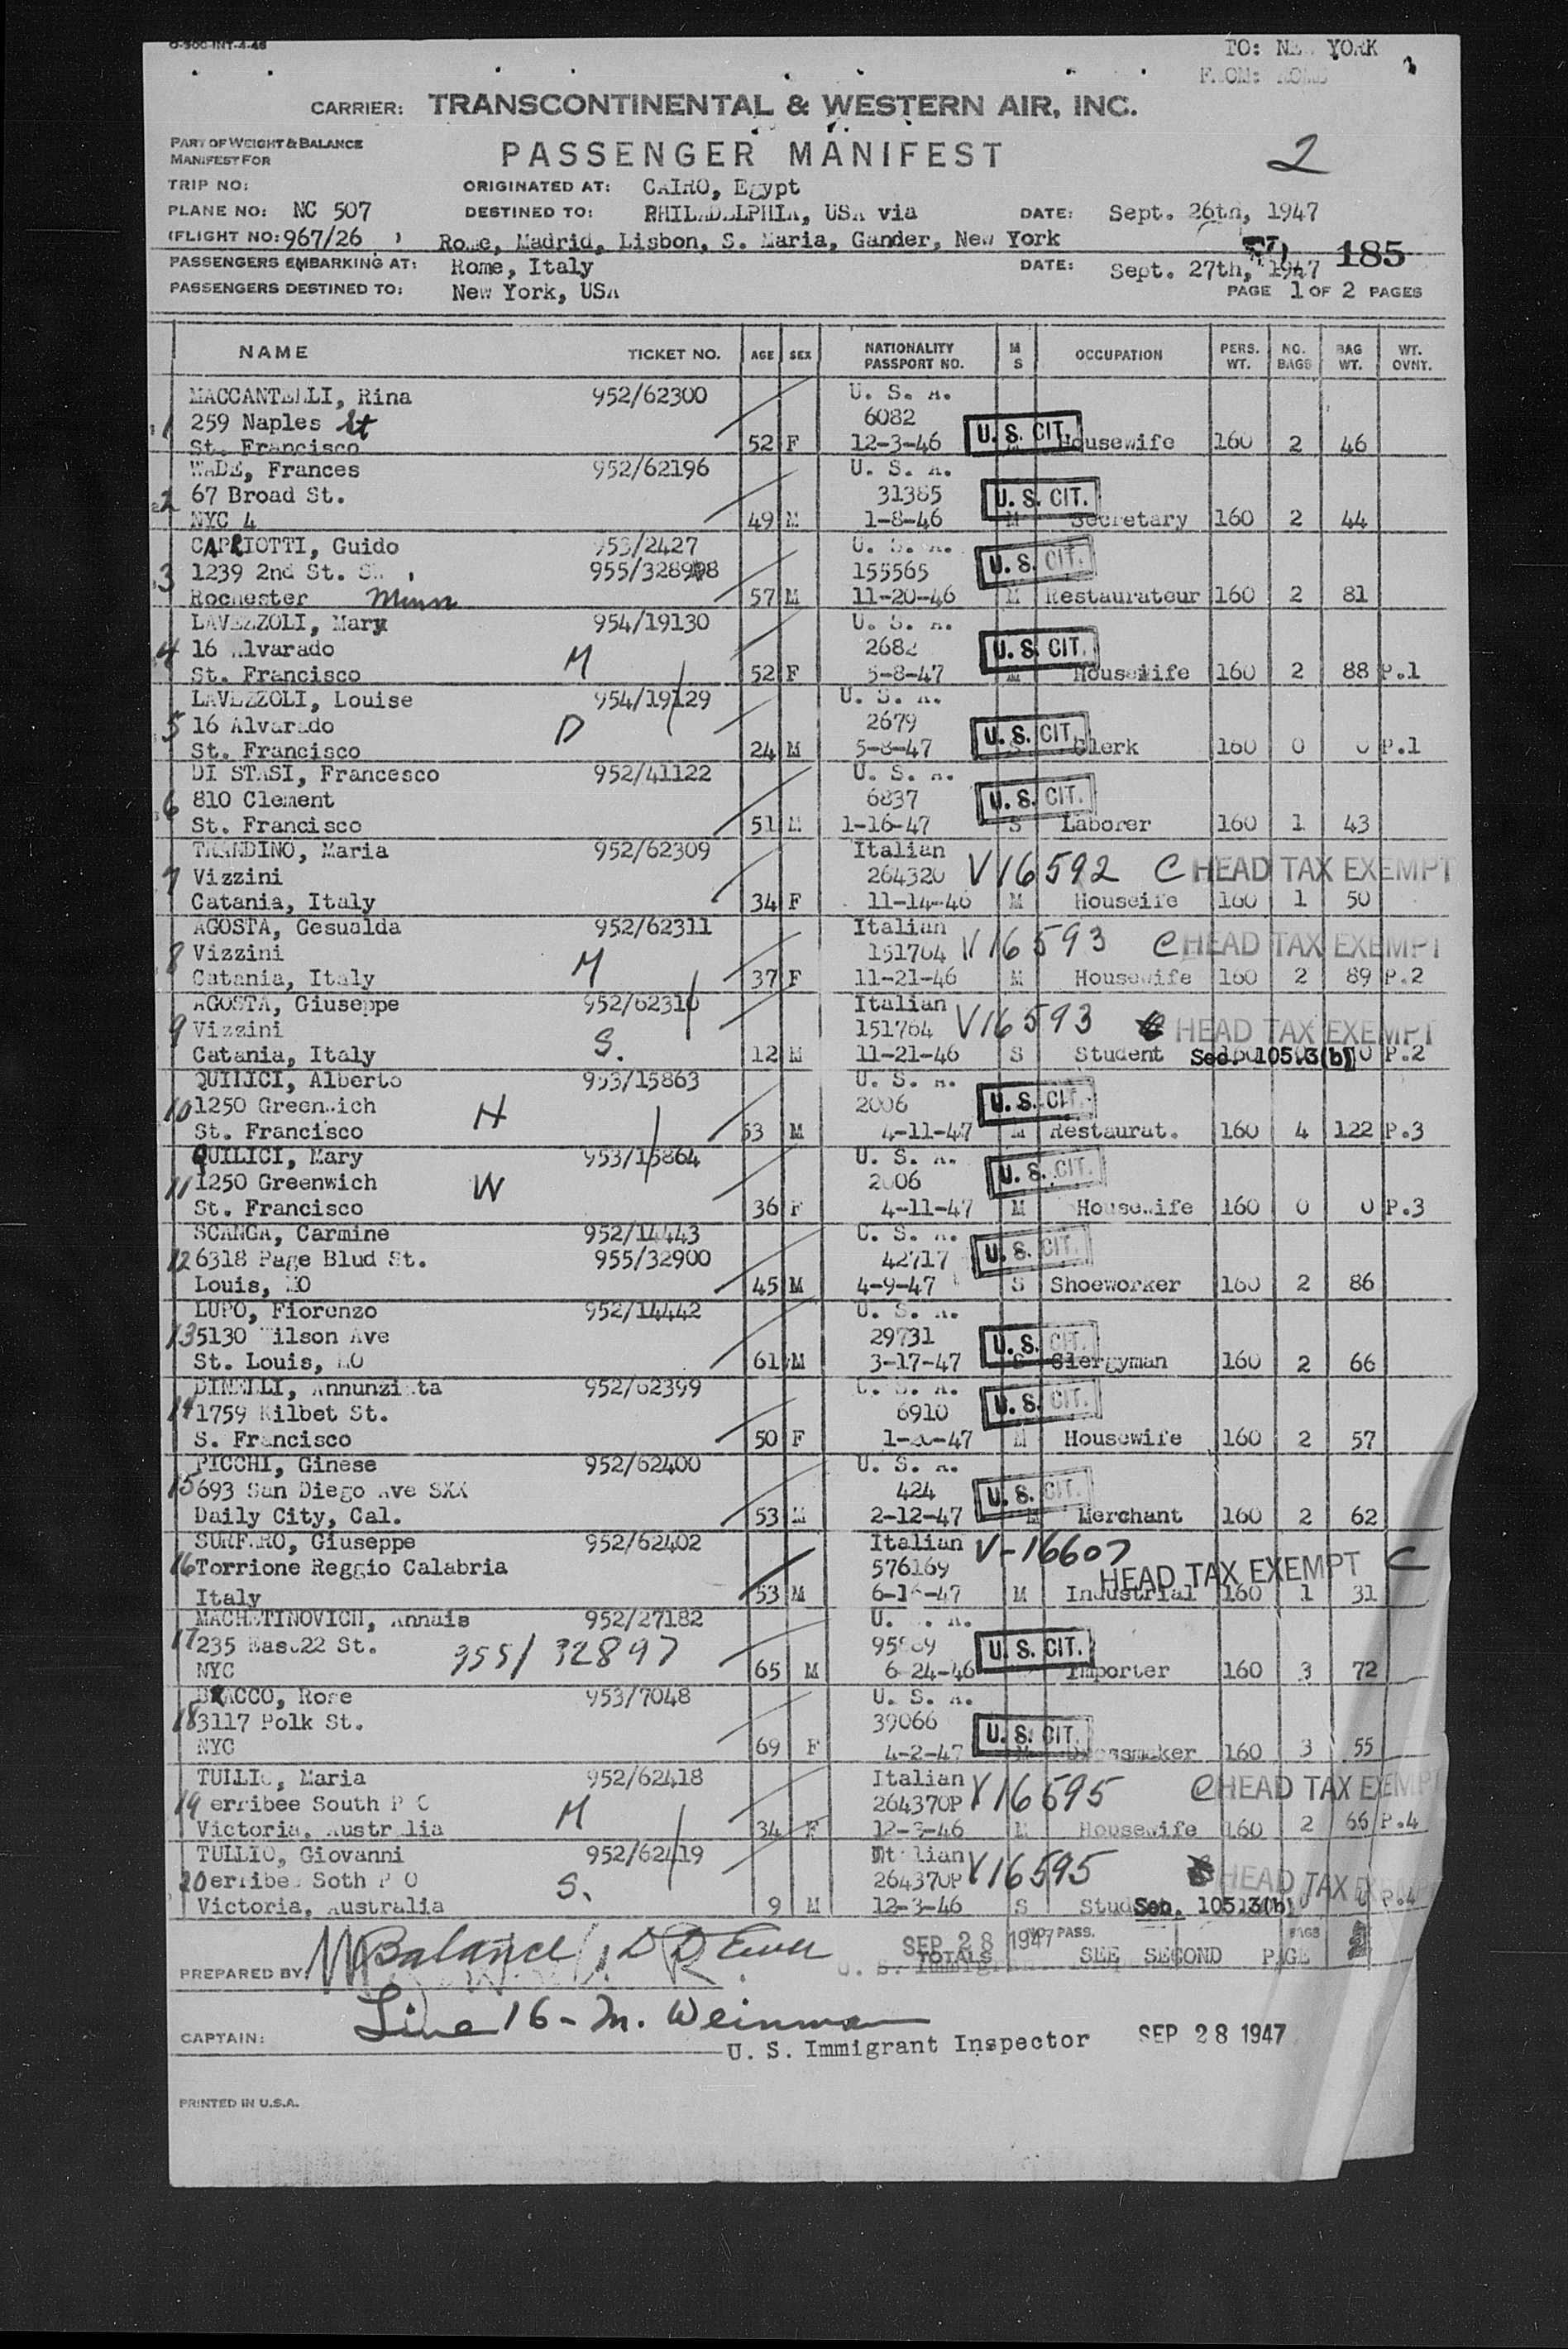 O-500-INT-4-46
TO: NEW YORK
FROM: ROME
CARRIER: TRANSCONTINENTAL & WESTERN AIR, INC.
PART OF WEIGHT & BALANCE
MANIFEST FOR
PASSENGER MANIFEST
2
TRIP NO:
ORIGINATED AT: CAIRO, Egypt
PLANE NO: NC 507
DESTINED TO: PHILADELPHIA, USA via
DATE: Sept. 26th, 1947
(FLIGHT NO: 967/26 )
Rome, Madrid, Lisbon, S. Maria, Gander, New York
185
PASSENGERS EMBARKING AT: Rome, Italy
DATE: Sept. 27th, 1947
PASSENGERS DESTINED TO: New York, USA
PAGE 1 OF 2 PAGES
NAME TICKET NO. AGE SEX NATIONALITY PASSPORT NO. M S OCCUPATION PERS. WT. NO. BAGS BAG WT. WT. OVNT.
MACCANTELLI, Rina 952/62300 U. S. A.
1 259 Naples St 6082
St. Francisco 52 F 12-3-46 U. S. CIT. Housewife 160 2 46
WADE, Frances 952/62196 U. S. A.
2 67 Broad St. 31385 U. S. CIT.
NYC 4 49 M 1-8-46 M Secretary 160 2 44
CAPRIOTTI, Guido 953/2427 U. S. A.
3 1239 2nd St. 955/32898 155565 U. S. CIT.
Rochester Minn 57 M 11-20-46 M Restaurateur 160 2 81
LAVEZZOLI, Mary 954/19130 U. S. A.
4 16 Alvarado M 2682 U. S. CIT.
St. Francisco 52 F 5-8-47 Housewife 160 2 88 P.1
LAVEZZOLI, Louise 954/19129 U. S. A.
5 16 Alvarado D 2679 U. S. CIT.
St. Francisco 24 M 5-8-47 S Clerk 160 0 0 P.1
DI STASI, Francesco 952/41122 U. S. A.
6 810 Clement 6837 U. S. CIT.
St. Francisco 51 M 1-16-47 S Laborer 160 1 43
TRANDINO, Maria 952/62309 Italian
7 Vizzini 264320 V16592 C HEAD TAX EXEMPT
Catania, Italy 34 F 11-14-46 M Houseife 160 1 50
AGOSTA, Gesualda 952/62311 Italian
8 Vizzini M 151764 V16593 C HEAD TAX EXEMPT
Catania, Italy 37 F 11-21-46 M Housewife 160 2 89 P.2
AGOSTA, Giuseppe 952/62310 Italian
9 Vizzini S. 151764 V16593 HEAD TAX EXEMPT
Catania, Italy 12 M 11-21-46 S Student Sec. 105.3(b) 0 P.2
QUILICI, Alberto 953/15863 U. S. A.
10 1250 Greenwich H 2006 U. S. CIT.
St. Francisco 53 M 4-11-47 M Restaurat. 160 4 122 P.3
QUILICI, Mary 953/15864 U. S. A.
11 1250 Greenwich W 2006 U. S. CIT.
St. Francisco 36 F 4-11-47 M Housewife 160 0 0 P.3
SCANGA, Carmine 952/14443 U. S. A.
12 6318 Page Blud St. 955/32900 42717 U. S. CIT.
Louis, MO 45 M 4-9-47 S Shoeworker 160 2 86
LUPO, Fiorenzo 952/14442 U. S. A.
13 5130 Wilson Ave 29731 U. S. CIT.
St. Louis, MO 61 M 3-17-47 S Clergyman 160 2 66
DINELLI, Annunziata 952/62399 U. S. A.
14 1759 Kilbet St. 6910 U. S. CIT.
S. Francisco 50 F 1-20-47 M Housewife 160 2 57
PICCHI, Ginese 952/62400 U. S. A.
15 693 San Diego Ave SXX 424 U. S. CIT.
Daily City, Cal. 53 M 2-12-47 M Merchant 160 2 62
SURFARO, Giuseppe 952/62402 Italian V-16607
16 Torrione Reggio Calabria 576169 HEAD TAX EXEMPT C
Italy 53 M 6-16-47 M Industrial 160 1 31
MACHETINOVICH, Annais 952/27182 U. S. A.
17 235 East22 St. 955/32897 95869 U. S. CIT.
NYC 65 M 6-24-46 Importer 160 3 72
BRACCO, Rose 953/7048 U. S. A.
18 3117 Polk St. 39066 U. S. CIT.
NYC 69 F 4-2-47 M Dressmaker 160 3 55
TULLIO, Maria 952/62418 Italian
19 erribee South P O M 264370P V16595 C HEAD TAX EXEMPT
Victoria, Australia 34 F 12-3-46 M Housewife 160 2 66 P.4
TULLIO, Giovanni 952/62419 Italian
20 erribee Soth P O S. 264370P V16595 HEAD TAX EXEMPT
Victoria, Australia 9 M 12-3-46 S Stud Sec. 105.3(b) 0 P.4
PREPARED BY: Balance
SEP 28 1947
NO. PASS. BAGS
TOTALS SEE SECOND PAGE
CAPTAIN: Line 16 - M. Weinman
U. S. Immigrant Inspector SEP 28 1947
PRINTED IN U.S.A.